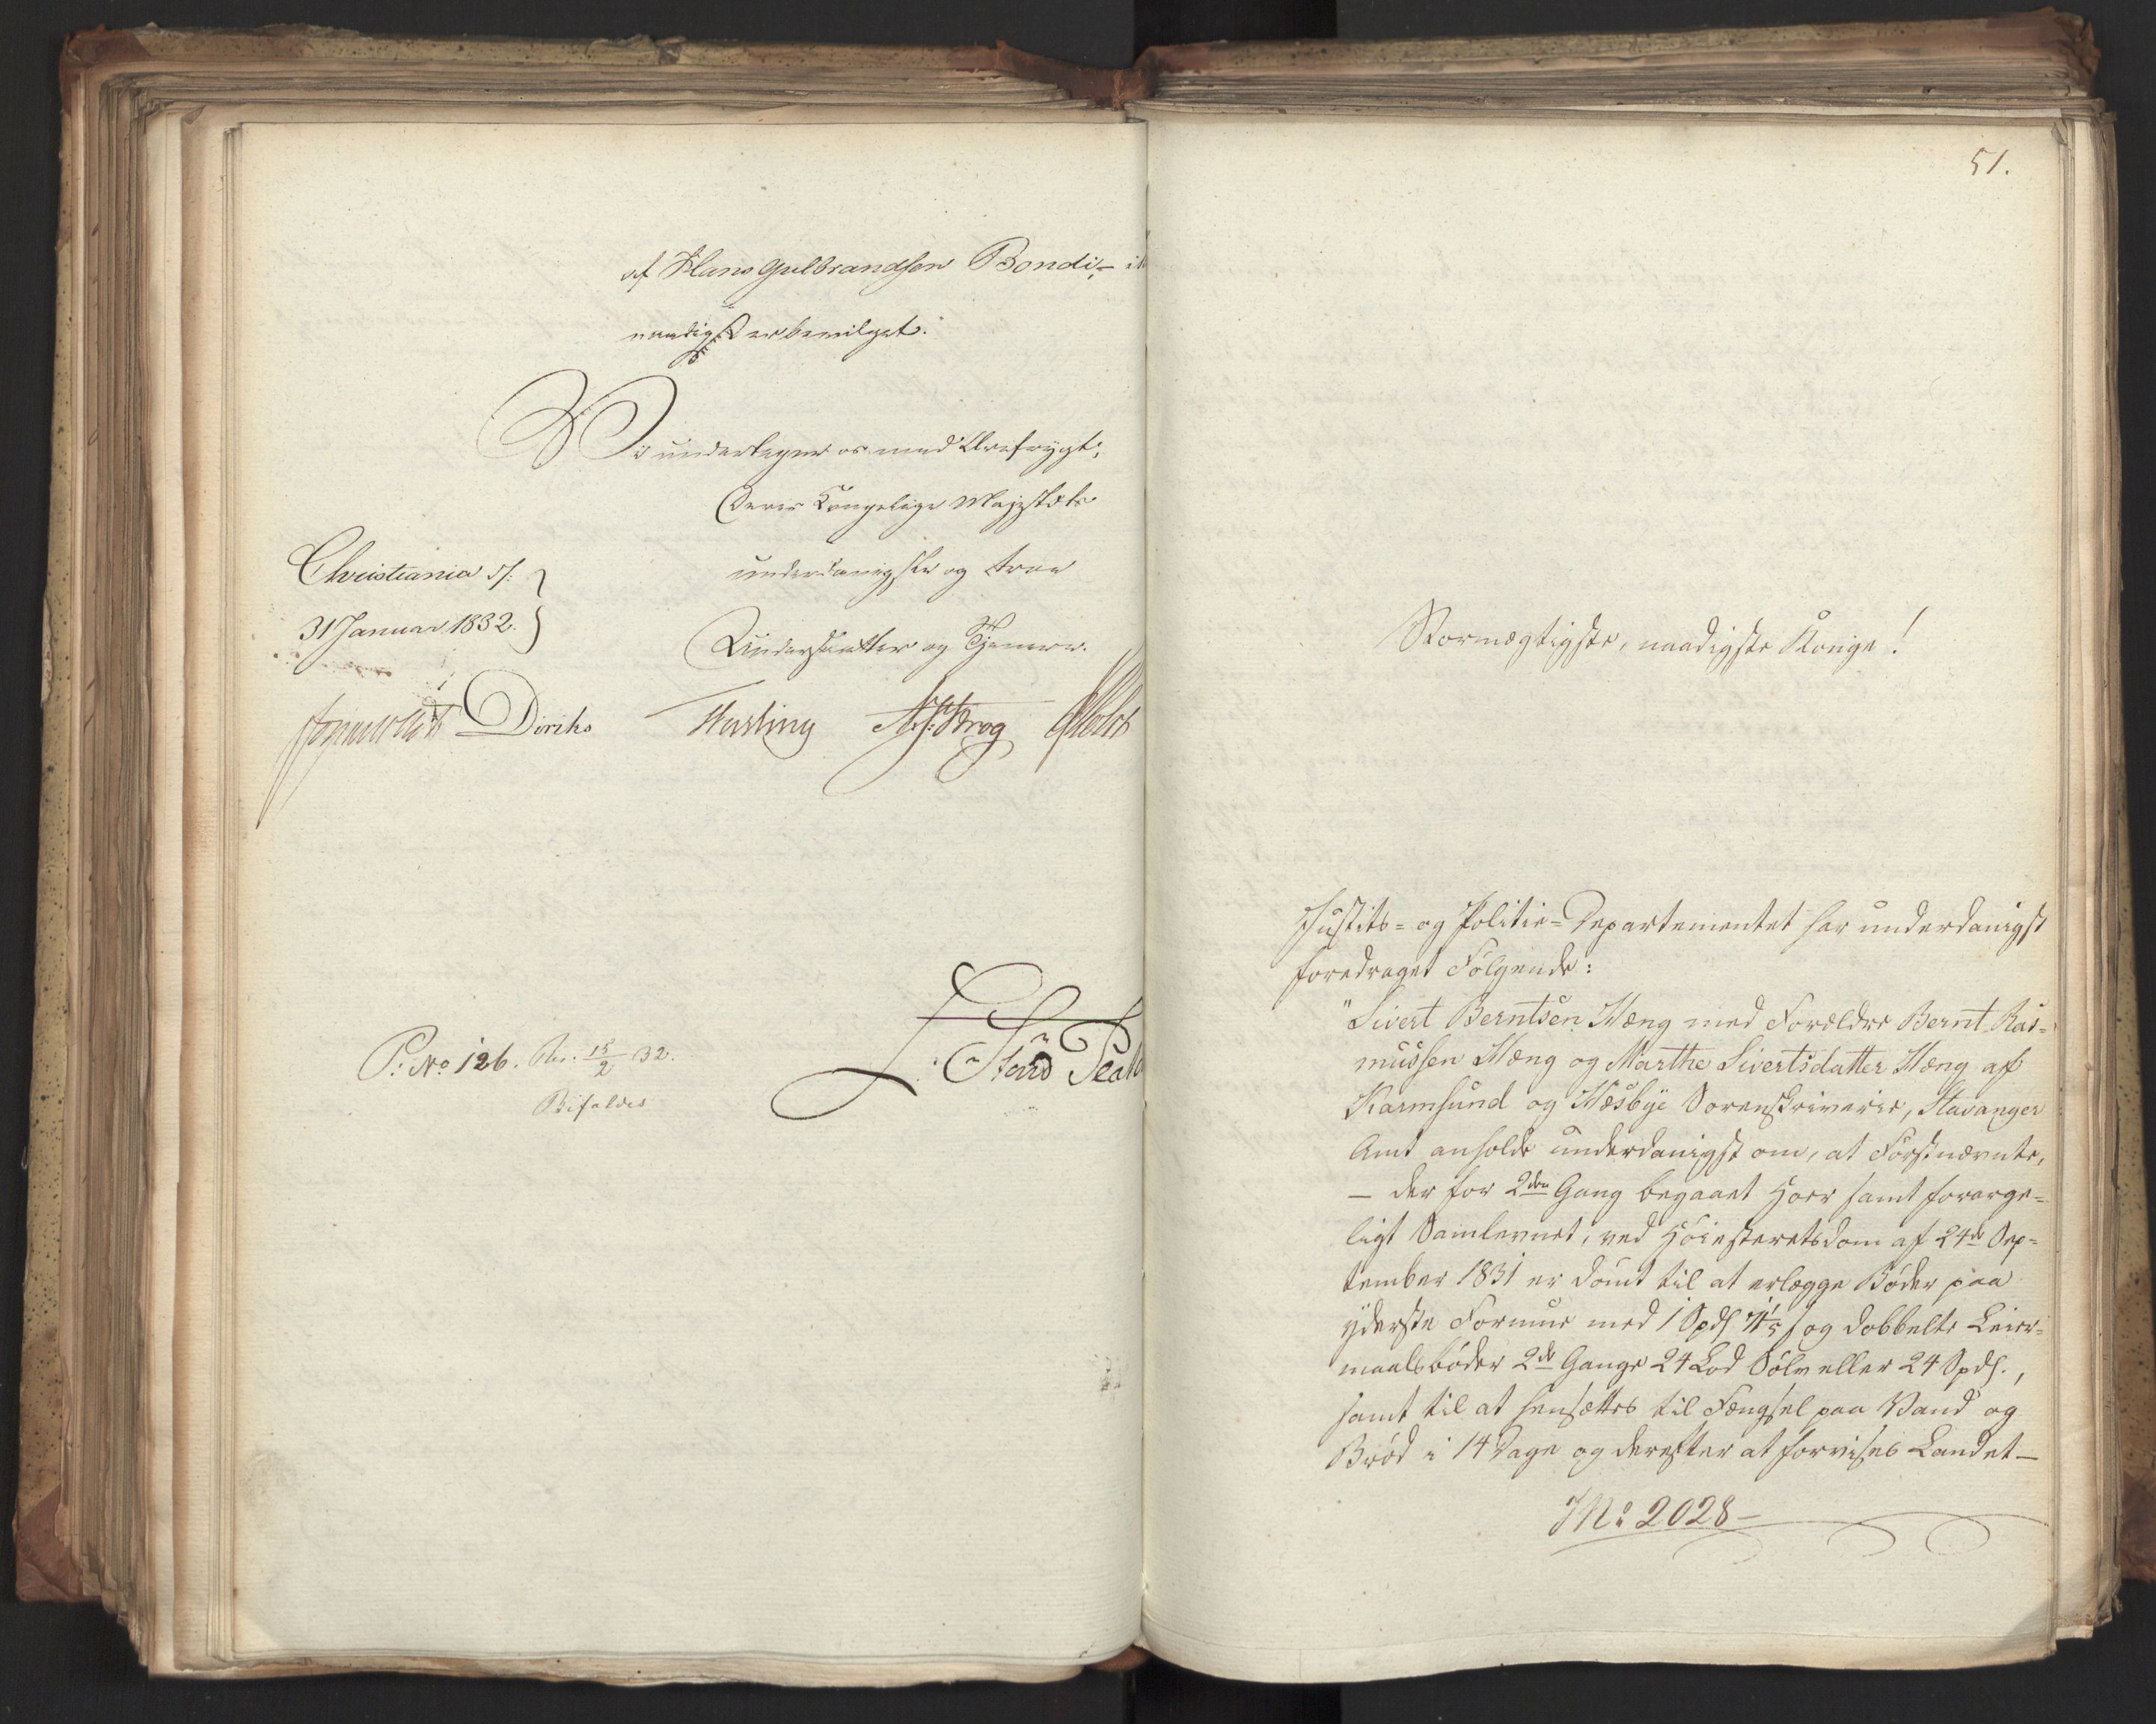 af Hans Gulbrandsen Bondi,
naadigst er bevilget.
Vi undertegne os med Ærefrygt,
Deres Kongelige Majestæts
Christiania d/:
underdanigste og troe
31 Januar 1832.
Undersaatter og Tjenere.
Diriks Fasting Krog Holst
P: No 126. Res: 18/2 32.
Bifaldes
51.
Stormægtigste, naadigste Konge!
Justits- og Politie-Departementet har underdanigst
foredraget Følgende:
"Sivert Berntsen Hæng med Forældre Bernt Ras-
mussen Hæng og Marthe Sivertsdatter Hæng af
Karmsund og Hesbye Sorenskriverie, Stavanger
Amt anholde underdanigst om, at Førstnævnte,
— der for 2den Gang begaaet Hoer samt forarge-
ligt Samlevnet, ved Høiesteretsdom af 24de Sep-
tember 1831 er dømt til at erlægge Bøder paa
yderste Formue med 1 Spd og dobbelte Leier-
maalsbøder 2de Gange 24 Lod Sølv eller 24 Spd.,
samt til at hensættes til Fængsel paa Vand og
Brød i 14 Dage og derefter at forvises Landet—
No 2028—